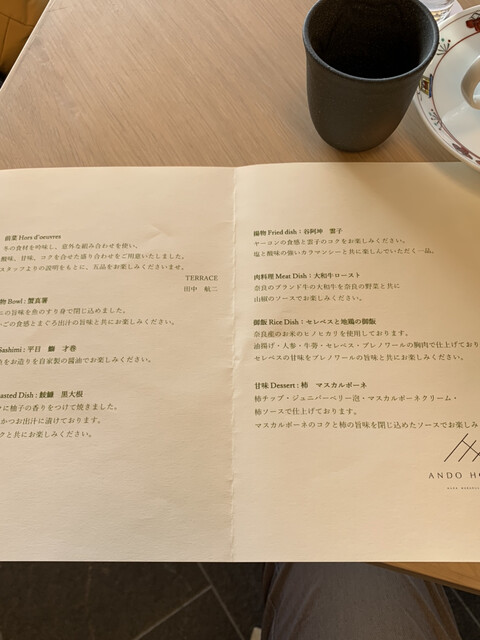 前菜 Hors d'oeuvres
りの食材を吟味し、意外な組み合わせを使い、
酸味、甘味、コクを合せた盛り合わせをご用意いたしました。
スタッフよりの説明をもとに、五品をお楽しみくださいませ。
TERRACE
田中 紘二
物 Bowl : 蟹真薯
この旨みを魚のすり身で閉じ込めました。
ごの食感とまぐろ出汁の旨味と共にお楽しみください。
Sashimi : 平目 鰤 才巻
お造りを自家製の醤油でお楽しみください。
asted Dish : 鮟鱇 黒大根
に柚子の香りをつけて焼きました。
かつお出汁に漬けております。
クと共にお楽しみください。
揚物 Fried dish : 谷阿坤 雲子
ヤーコンの食感と雲子のコクをお楽しみください。
塩と酸味の強いカラマンシーと共に楽しんでいただく一品。
肉料理 Meat Dish : 大和牛ロースト
奈良のブランド牛の大和牛を奈良の野菜と共に
山椒のソースでお楽しみください。
御飯 Rice Dish : セレベスと地鶏の御飯
奈良産のお米のヒノヒカリを使用しております。
油揚げ・人参・牛蒡・セレベス・ブレノワールの胸肉で仕上げており
セレベスの甘味をブレノワールの旨味と共にお楽しみください。
甘味 Dessert : 柿 マスカルポーネ
柿チップ・ジュニパーベリー泡・マスカルポーネクリーム・
柿ソースで仕上げております。
マスカルポーネのコクと柿の旨味を閉じ込めたソースでお楽しみ
ANDO HO